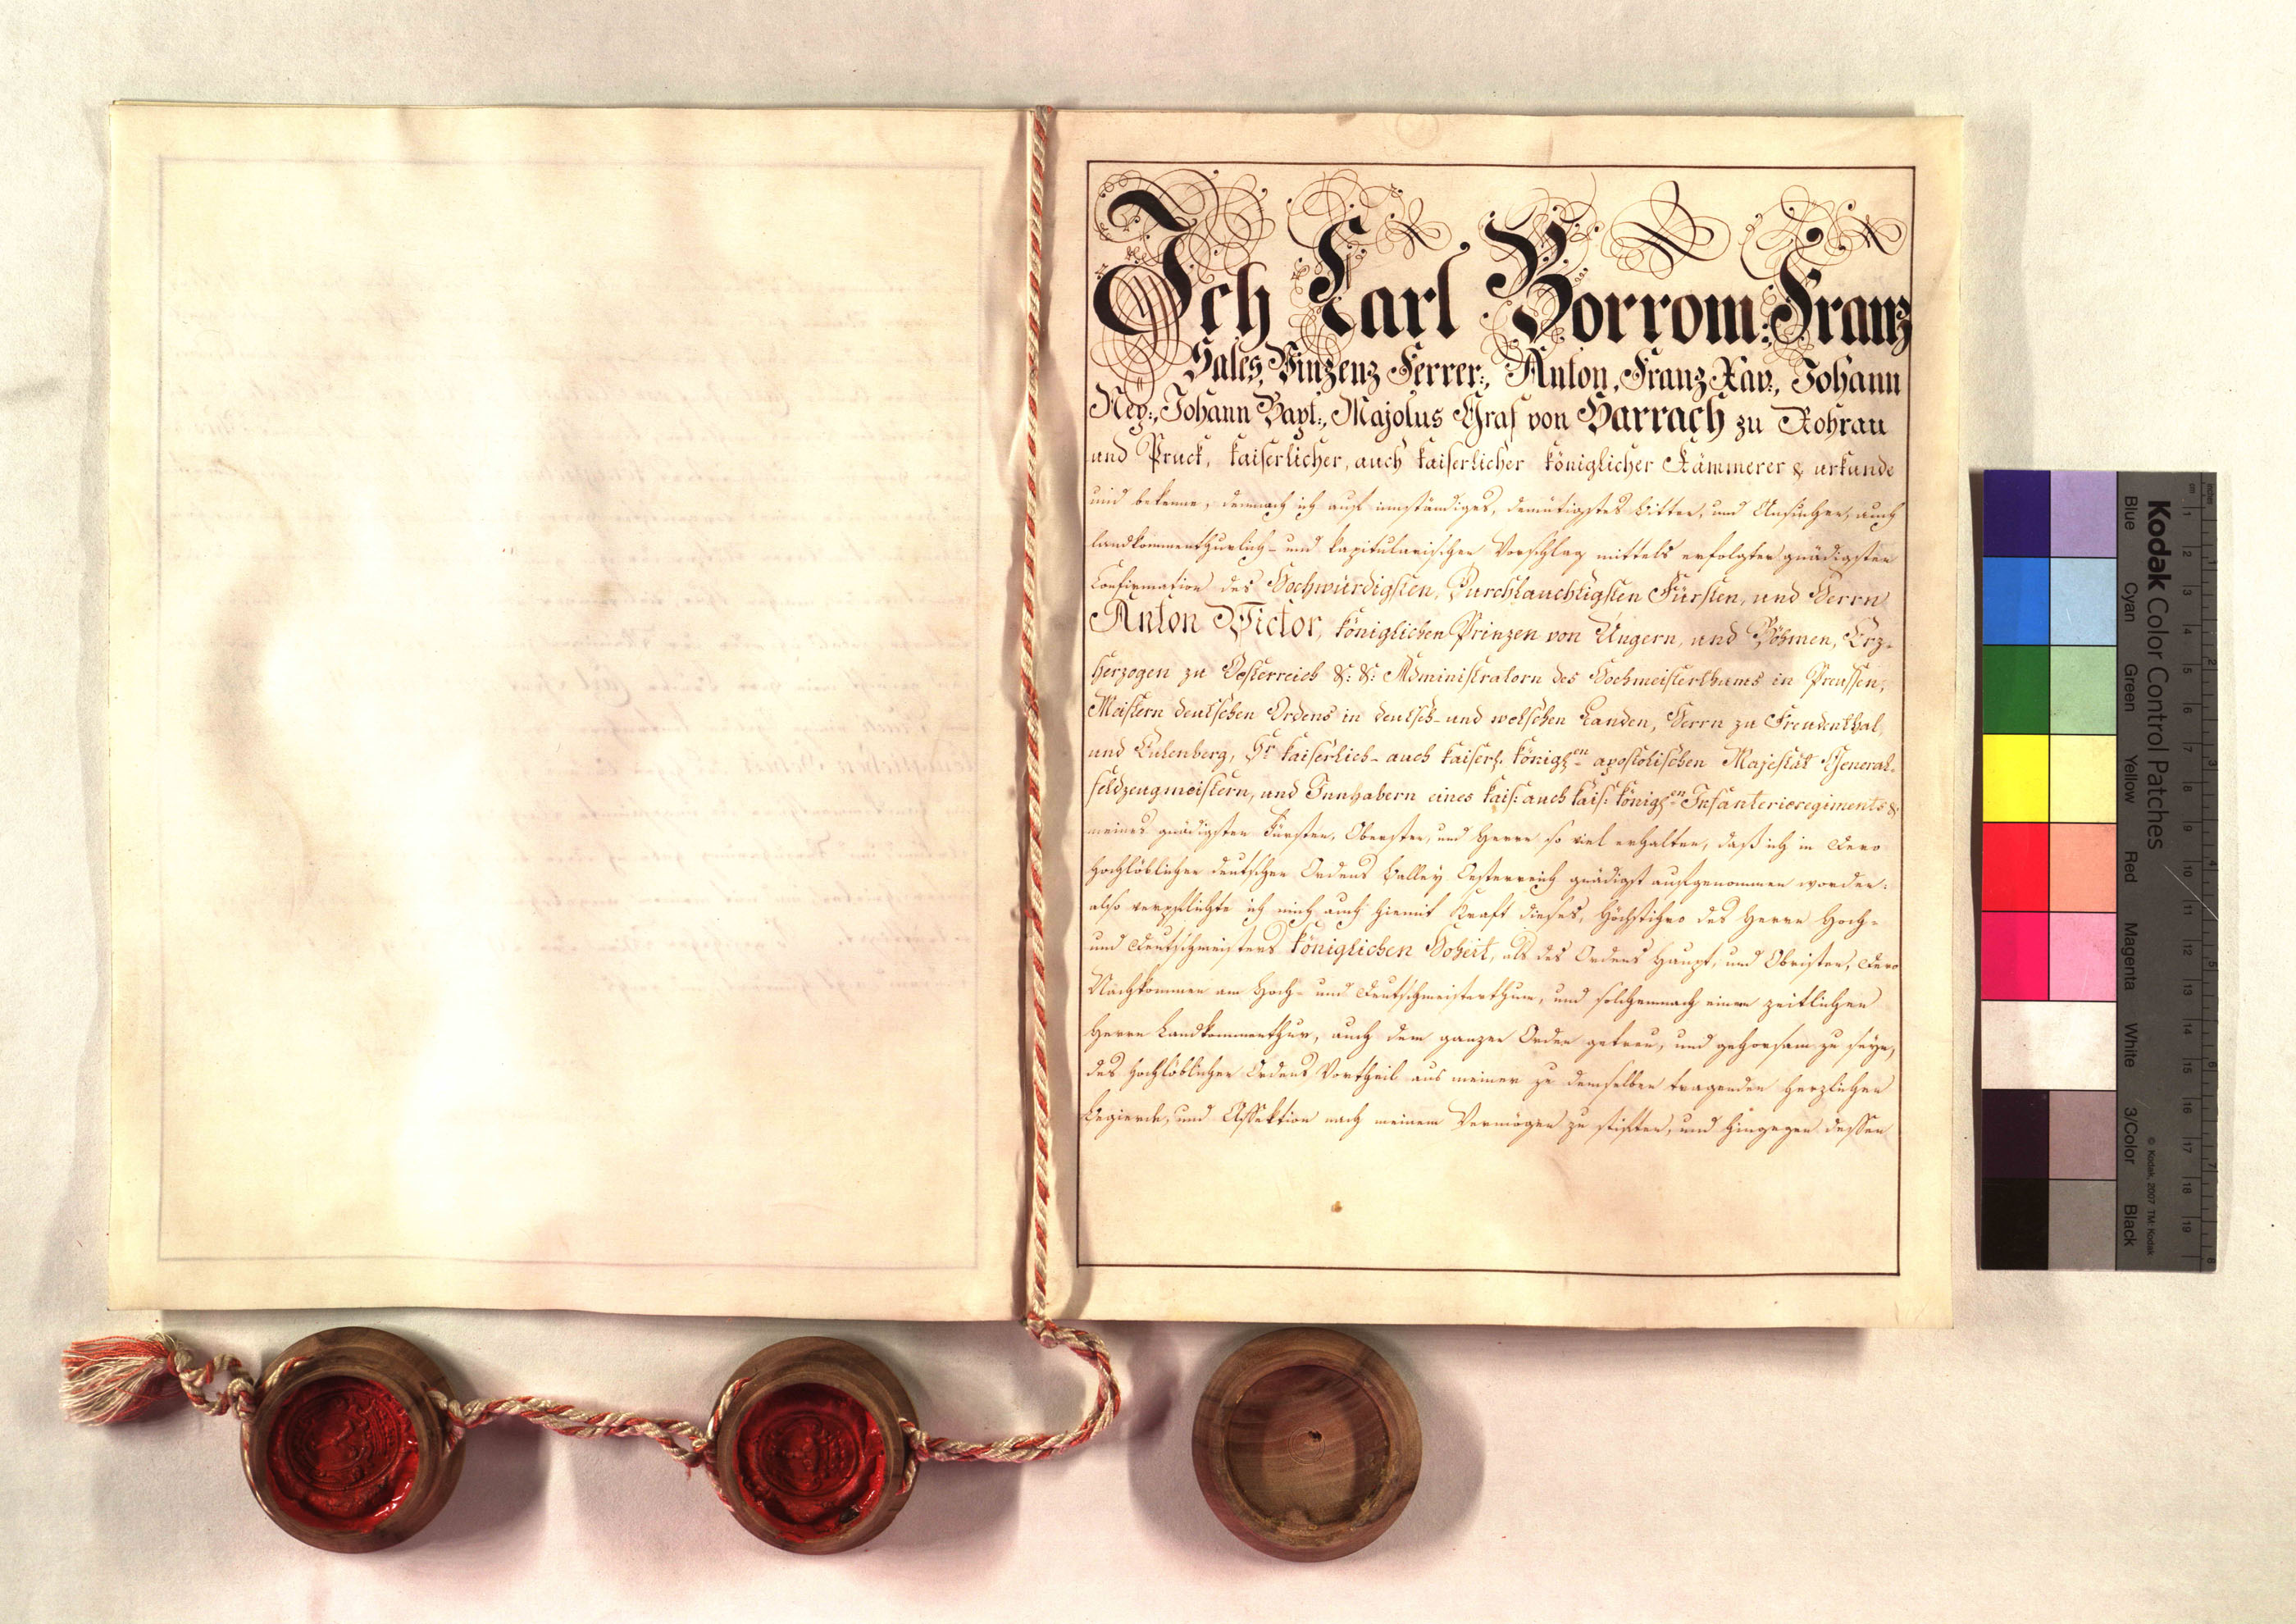 Ich Carl Borrom: Franz
Sales, Vinzenz Ferrer:, Anton, Franz Xav:, Johann
Nep:, Johann Bapt:, Majolus Graf von Harrach zu Rohrau
und Pruck, kaiserlicher, auch kaiserlicher königlicher Kämmerer & urkunde
und bekenne, demnach ich auf innständiges, demütigstes Bitten, und Ansuchen, auch
landkommenthurlich- und kapitularischen Vorschlag mittels erfolgter gnädigsten
Confirmation des Hochwürdigsten, Durchlauchtigsten Fürsten, und Herrn
Anton Victor, königlichen Prinzen von Ungern, und Böhmen, Erz-
herzogen zu Oesterreich &: &: Administratorn des Hochmeisterthums in Preussen,
Meistern deutschen Ordens in deutsch- und welschen Landen, Herrn zu Freudenthal,
und Eulenberg, Sr kaiserlich- auch kaiserl. königlen apostolischen Majestät General-
feldzeugmeistern, und Innhabern eines kais: auch kais: königlen Infanterieregiments &
meines gnädigsten Fürsten, Obersten, und Herrn so viel erhalten, daß ich in dero
hochlöblichen deutschen Ordens Balley Oesterreich gnädigst aufgenommen worden:
also verpflichte ich mich auch hiemit Kraft dieses, Höchstihro des Herrn Hoch-
und Deutschmeisters königlichen Hoheit, als des Ordens Haupt, und Obristen, dero
Nachkommen am Hoch- und Deutschmeisterthum, und solchemnach einem zeitlichen
Herrn Landkommenthur, auch dem ganzen Orden getreu, und gehorsam zu seyn,
des hochlöblichen Ordens Vortheil aus meiner zu demselben tragenden herzlichen
Begierde, und Affektion nach meinem Vermögen zu stiften, und hingegen dessen
Kodak Color Control Patches
Blue Cyan Green Yellow Red Magenta White 3/Color Black
© Kodak, 2007 TM: Kodak
inches 1 2 3 4 5 6 7 8
cm 1 2 3 4 5 6 7 8 9 10 11 12 13 14 15 16 17 18 19